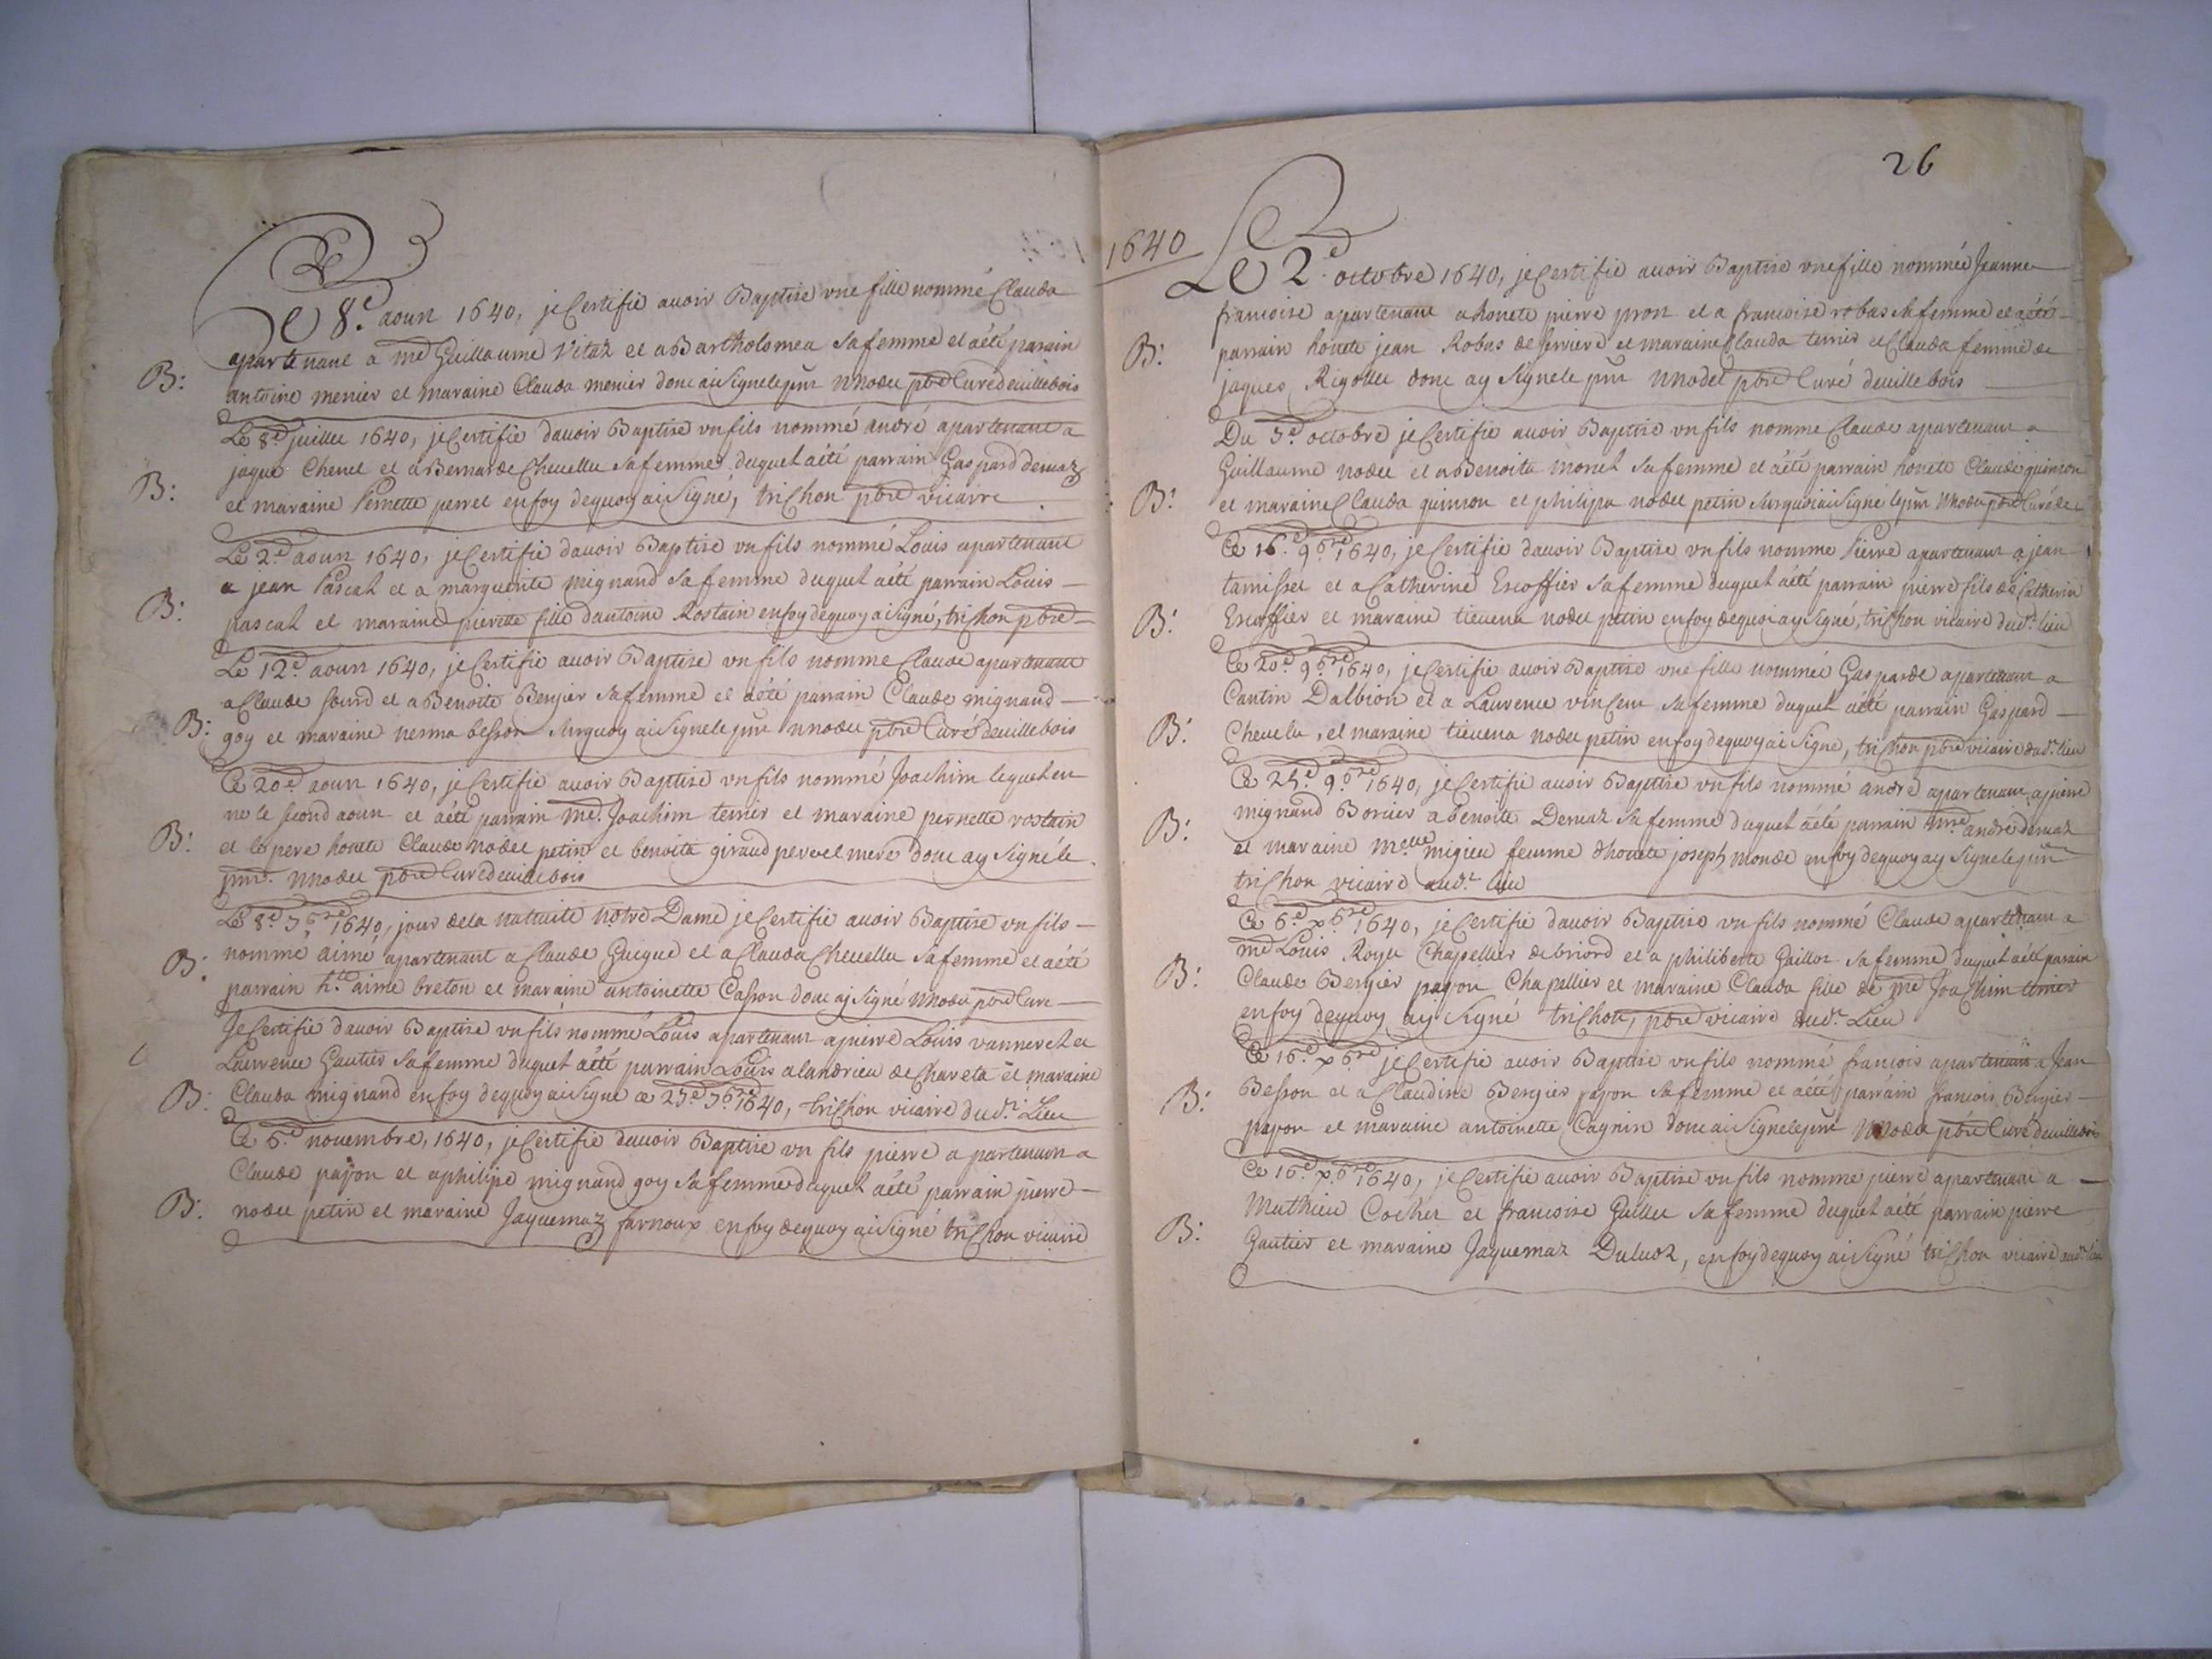 Le 8.e aoun 1640, je Certifie auoir Baptise vne fille nommé Clauda
apartenant a me Guillaume Vitaz et a Bartholomea sa femme et a été parain
B: antoine menier et maraine Clauda menier donc ai signe le pnt nnodet pbre Curé deuillebois
Le 8.e juillet 1640, je Certifie dauoir Baptise vn fils nommé andré apartenant a
jaque Chenel et a Bernarde Cheuellu sa femme duquel a été parrain Gaspard demaz
B: et maraine Pernette perret en foy dequoy ai signé, trichon pbre vicaire
Le 2.e aoun 1640, je Certifie dauoir Baptise vn fils nommé Louis apartenant
a jean Pascal et a marguerite mignand sa femme duquel a été parrain Louis
B: pascal et maraine pierette fille dantoine Rostain en foy dequoy ai signé, trichon pbre
Le 12.e aoun 1640, je Certifie auoir Baptise vn fils nomme Claude apartenant
a Claude sourd et a Benoite Bergier sa femme et a été parrain Claude mignand
B: goy et maraine besson surquoy ai signe le pnt nnodet pbre Curé deuillebois
Ce 20.e aoun 1640, je Certifie auoir Baptise vn fils nommé Joachim lequel en
ne le second aoun et a été parrain me. Joachim terrier et maraine pernette rostain
B: et le pere honete Claude nodet petin et benoite giraud pere et mere donc ay signé le
pnt. nnodet pbre Curé deuillebois
Le 8.e 7bre 1640, jour dela natiuité notre Dame je Certifie auoir Baptise vn fils
B: nommé aimé apartenant a Claude Guigue et a Clauda Cheuellu sa femme et a été
parrain h.te aime breton et maraine antoinette Casson donc aj signé nnodet pbre Cure
Je Certifie dauoir Baptise vn fils nommé Louis apartenant a pierre Louis vanneret et
Laurence Gautier sa femme duquel a été parrain Louis alandrieu de Chareta et maraine
B: Clauda mignand en foy dequoy ai signe ce 25.e 7bre 1640, trichon vicaire dud.t Lieu
Ce 6.e nouembre, 1640, je Certifie dauoir Baptise vn fils pierre apartenant a
Claude payon et a philipe mignand goy sa femme duquel a été parrain pierre
B: nodet petin et maraine Jaquemaz farnoux en foy dequoy ai signé trichon vicaire
26
1640
Le 2.e octobre 1640, je Certifie auoir Baptise vne fille nommée Jeanne
francoise apartenant a honete pierre pron et a francoise robas sa femme et a été
B: parrain honete jean Robas de serriere et maraine Clauda terrier et Clauda femme de
jaques Rigollet donc ay signe le pnt nnodet pbre Curé deuillebois
Du 5.e octobre je Certifie auoir Baptise vn fils nomme Claude apartenant a
Guillaume nodet et a Benoite monet sa femme et a été parrain honete Claude quinson
B: et maraine Clauda quinson et philipa nodet petin surquoi ai signé le pnt nnodet pbre Curé de
Ce 16.e 9bre 1640, je Certifie dauoir Baptise vn fils nomme Pierre apartenant a jean
tamisset et a Catherine Escoffier sa femme duquel a été parrain pierre fils de Catherin
B: Escoffier et maraine tieuena nodet petin en foy dequoi ay signé, trichon vicaire dud.t lieu
Ce 20.e 9bre 1640, je Certifie auoir Baptise vne fille nommée Gasparde apartenant a
Cantin Dalbion et a Laurence vincent sa femme duquel a été parrain Gaspard
B: Cheuelu, et maraine tieuena nodet petin en foy dequoy ai signe, trichon pbre vicaire dud.t lieu
Ce 25.e 9bre 1640, je Certifie auoir Baptise vn fils nommé andré apartenant a pierre
mignand Borrier a benoite Demaz sa femme duquel a été parrain mre andré demaz
B: et maraine melle migieu femme dhonete joseph monde en foy dequoy ay signe le pnt
trichon vicaire aud.t lieu
Ce 6.e xbre 1640, je Certifie dauoir Baptise vn fils nommé Claude apartenant a
me Louis Royer Chapellier de briord et a philiberte Gaillot sa femme duquel a été parain
B: Claude Bergier payon Chapellier et maraine Clauda fille de me Joachim terrier
en foy dequoy ay signé trichon, pbre vicaire dud.t Lieu
Ce 16.e xbre je Certifie auoir Baptise vn fils nommé francois apartenant a Jean
B: Besson et a Claudine Bergier payon sa femme et a été parrain francois Bergier
payon et maraine antoinette Cagnin donc ai signe le pnt nnodet pbre Curé deuillebois
Ce 16.e xbre 1640, je Certifie auoir Baptise vn fils nomme pierre apartenant a
Mathieu Cocher et francoise Guillet sa femme duquel a été parrain pierre
B: Gautier et maraine Jaquemaz Duluoz, en foy dequoy ai signé trichon vicaire aud.t lieu